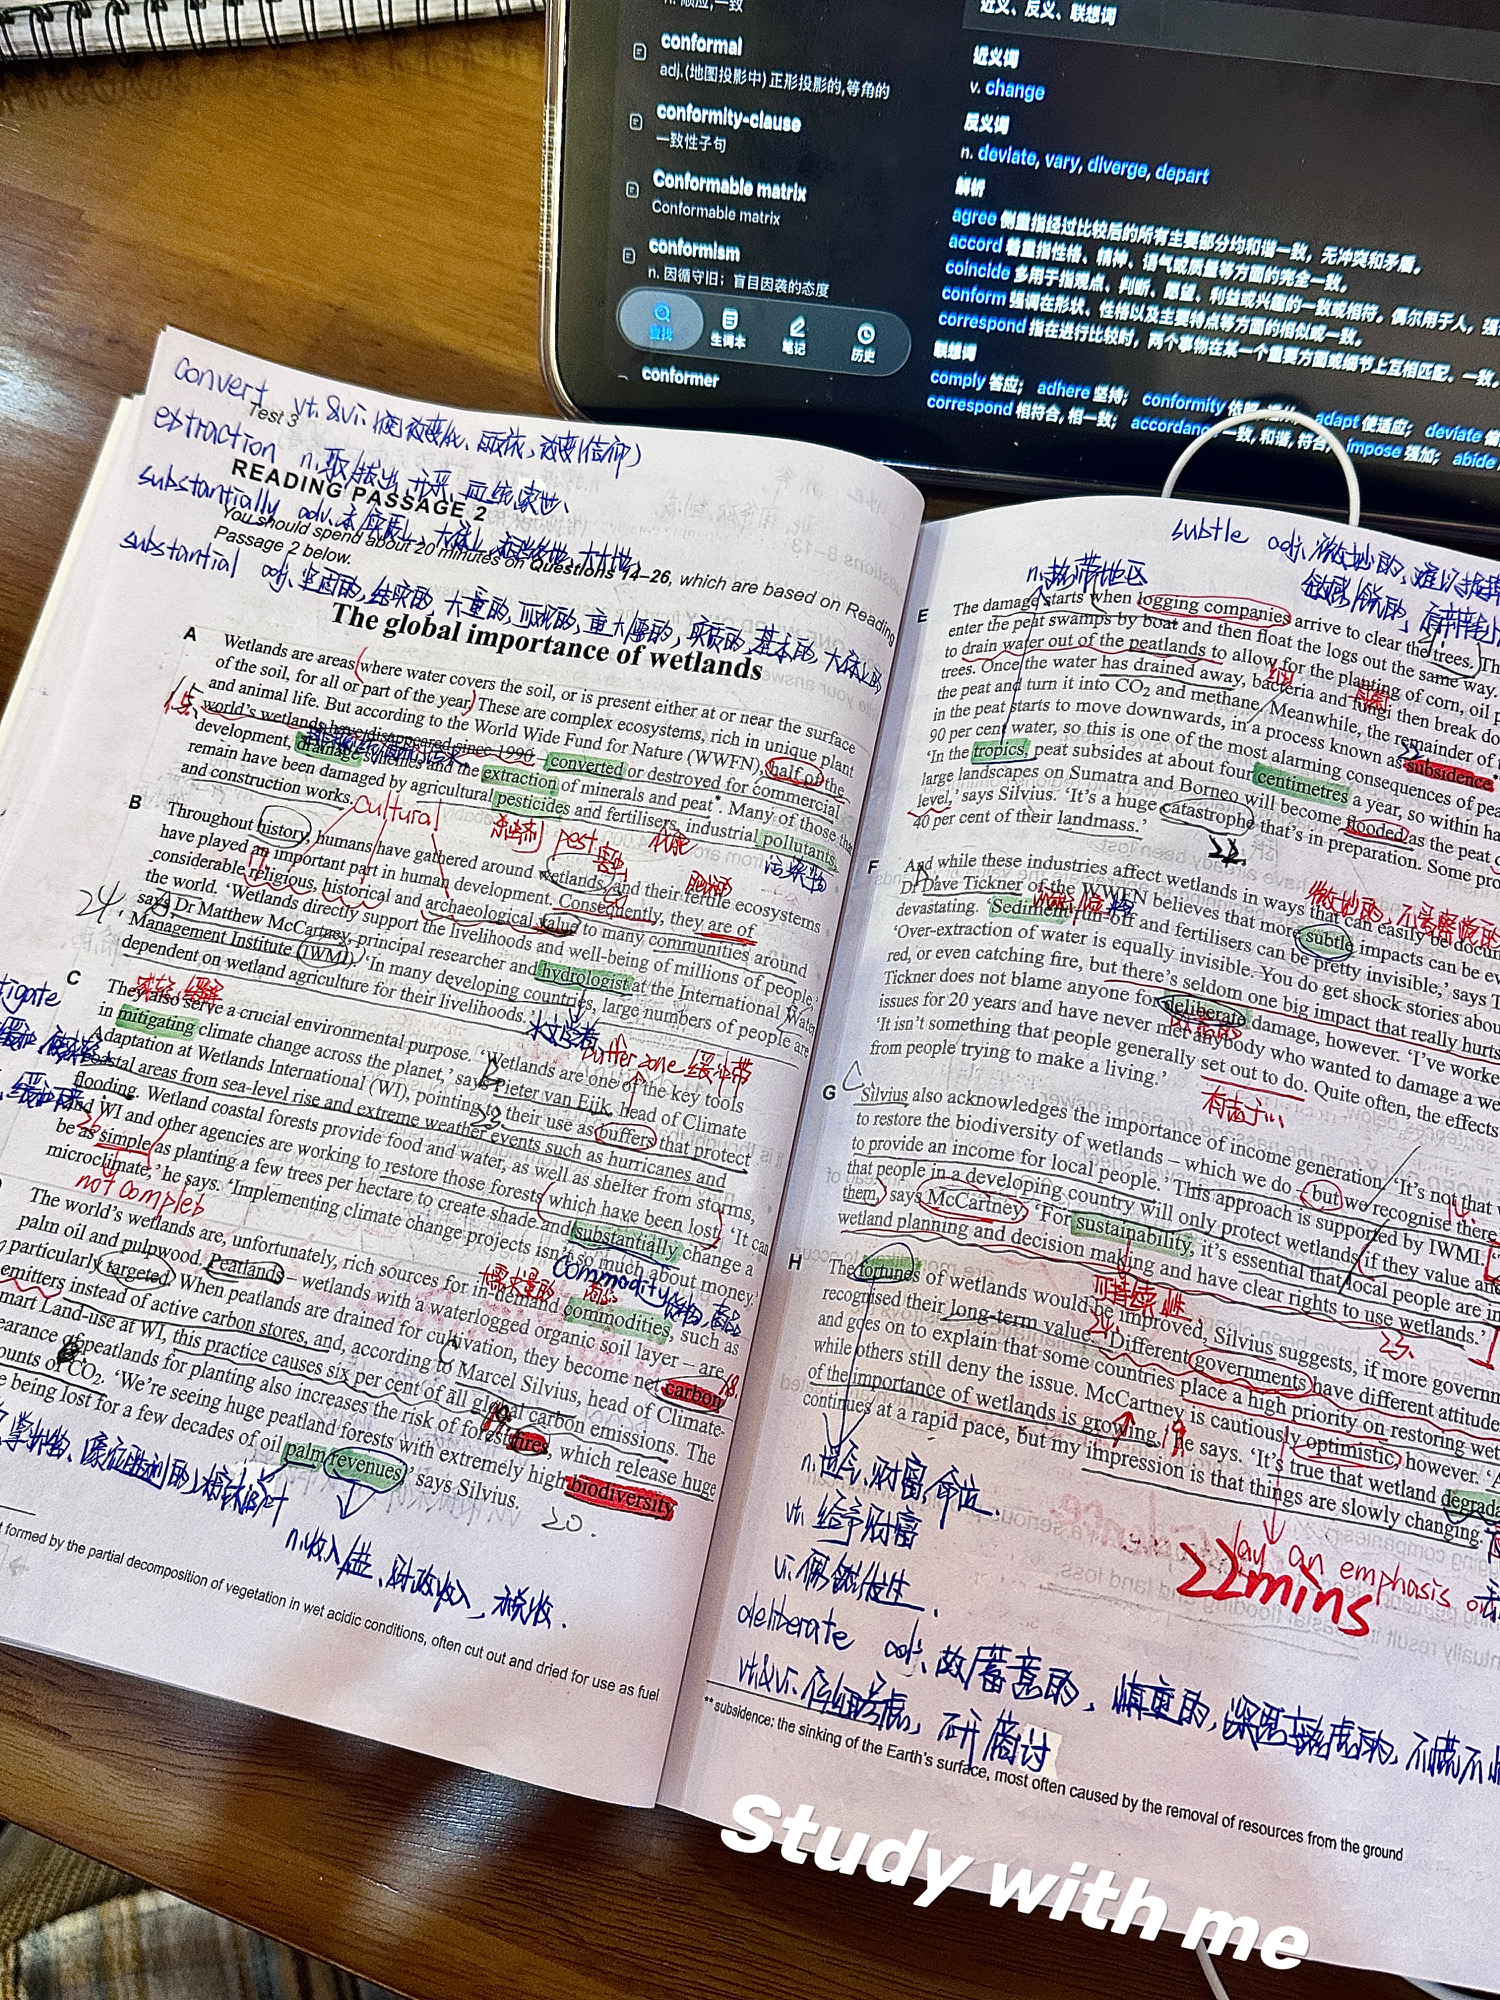 conformal
adj.(地图投影中) 正形投影的,等角的
conformity-clause
一致性子句
Conformable matrix
Conformable matrix
conformism
n. 因循守旧；盲目因袭的态度
查找
生词本
笔记
历史
conformer
近义、反义、联想词
近义词
v. change
反义词
n. deviate, vary, diverge, depart
解析
agree 侧重指经过比较后的所有主要部分均和谐一致，无冲突和矛盾。
accord 着重指性格、精神、语气或质量等方面的完全一致。
coincide 多用于指观点、判断、愿望、利益或兴趣的一致或相符。偶尔用于人，强
conform 强调在形状、性格以及主要特点等方面的相似或一致。
correspond 指在进行比较时，两个事物在某一个重要方面或细节上互相匹配、一致。
联想词
comply 答应； adhere 坚持； conformity 依照 adapt 使适应； deviate 偏
correspond 相符合, 相一致； accordance 一致, 和谐, 符合； impose 强加； abide
convert vt.&vi.
Test 3
extraction n.
READING PASSAGE 2
substantially adv.
You should spend about 20 minutes on Questions 14–26, which are based on Reading
Passage 2 below.
substantial adj.
The global importance of wetlands
A
Wetlands are areas where water covers the soil, or is present either at or near the surface
of the soil, for all or part of the year. These are complex ecosystems, rich in unique plant
and animal life. But according to the World Wide Fund for Nature (WWFN), half of the
world's wetlands have disappeared since 1990 – converted or destroyed for commercial
development, drainage schemes and the extraction of minerals and peat*. Many of those that
remain have been damaged by agricultural pesticides and fertilisers, industrial pollutants,
and construction works.
cultural
杀虫剂 pest
污染物
B
Throughout history, humans have gathered around wetlands, and their fertile ecosystems
have played an important part in human development. Consequently, they are of
considerable religious, historical and archaeological value to many communities around
the world. 'Wetlands directly support the livelihoods and well-being of millions of people,'
24
says Dr Matthew McCartney, principal researcher and hydrologist at the International Water
Management Institute (IWMI). 'In many developing countries, large numbers of people are
dependent on wetland agriculture for their livelihoods.'
水文学者
buffer zone 缓冲带
C
They also serve a crucial environmental purpose. 'Wetlands are one of the key tools
in mitigating climate change across the planet,' says Pieter van Eijk, head of Climate
Adaptation at Wetlands International (WI), pointing to their use as buffers that protect
coastal areas from sea-level rise and extreme weather events such as hurricanes and
flooding. Wetland coastal forests provide food and water, as well as shelter from storms,
and WI and other agencies are working to restore those forests which have been lost. 'It can
be as simple as planting a few trees per hectare to create shade and substantially change a
microclimate,' he says. 'Implementing climate change projects isn't so much about money.'
not complet
commodity
The world's wetlands are, unfortunately, rich sources for in-demand commodities, such as
palm oil and pulpwood. Peatlands – wetlands with a waterlogged organic soil layer – are
particularly targeted. When peatlands are drained for cultivation, they become net carbon
emitters instead of active carbon stores, and, according to Marcel Silvius, head of Climate-
mart Land-use at WI, this practice causes six per cent of all global carbon emissions. The
earance of peatlands for planting also increases the risk of forest fires, which release huge
ounts of CO2. 'We're seeing huge peatland forests with extremely high biodiversity
e being lost for a few decades of oil palm revenues,' says Silvius.
20.
t formed by the partial decomposition of vegetation in wet acidic conditions, often cut out and dried for use as fuel
subtle adj.
n.热带地区
E
The damage starts when logging companies arrive to clear the trees. Th
enter the peat swamps by boat and then float the logs out the same way.
to drain water out of the peatlands to allow for the planting of corn, oil p
trees. Once the water has drained away, bacteria and fungi then break do
the peat and turn it into CO2 and methane. Meanwhile, the remainder of
in the peat starts to move downwards, in a process known as subsidence**
90 per cent water, so this is one of the most alarming consequences of pea
'In the tropics, peat subsides at about four centimetres a year, so within ha
large landscapes on Sumatra and Borneo will become flooded as the peat
level,' says Silvius. 'It's a huge catastrophe that's in preparation. Some pro
40 per cent of their landmass.'
F
And while these industries affect wetlands in ways that can easily be docum
Dr Dave Tickner of the WWFN believes that more subtle impacts can be ev
devastating. 'Sediment run-off and fertilisers can be pretty invisible,' says T
'Over-extraction of water is equally invisible. You do get shock stories abou
red, or even catching fire, but there's seldom one big impact that really hurts
Tickner does not blame anyone for deliberate damage, however. 'I've worke
issues for 20 years and have never met anybody who wanted to damage a we
'It isn't something that people generally set out to do. Quite often, the effects
from people trying to make a living.'
有志于...
G
Silvius also acknowledges the importance of income generation. 'It's not that w
to restore the biodiversity of wetlands – which we do – but we recognise there
to provide an income for local people.' This approach is supported by IWMI.
that people in a developing country will only protect wetlands if they value an
them,' says McCartney. 'For sustainability, it's essential that local people are in
wetland planning and decision making and have clear rights to use wetlands.'
可持续性
23.
H
The fortunes of wetlands would be improved, Silvius suggests, if more governm
recognised their long-term value. 'Different governments have different attitude
and goes on to explain that some countries place a high priority on restoring wet
while others still deny the issue. McCartney is cautiously optimistic, however. 'A
of the importance of wetlands is growing,' he says. 'It's true that wetland degrada
continues at a rapid pace, but my impression is that things are slowly changing.'
lay an emphasis on
22mins
n.收入, 财政收入, 税收.
vt. 给予财富
vi. 偶然发生.
deliberate adj.
vt.&vi. 仔细考虑, 研商讨
** subsidence: the sinking of the Earth's surface, most often caused by the removal of resources from the ground
Study with me